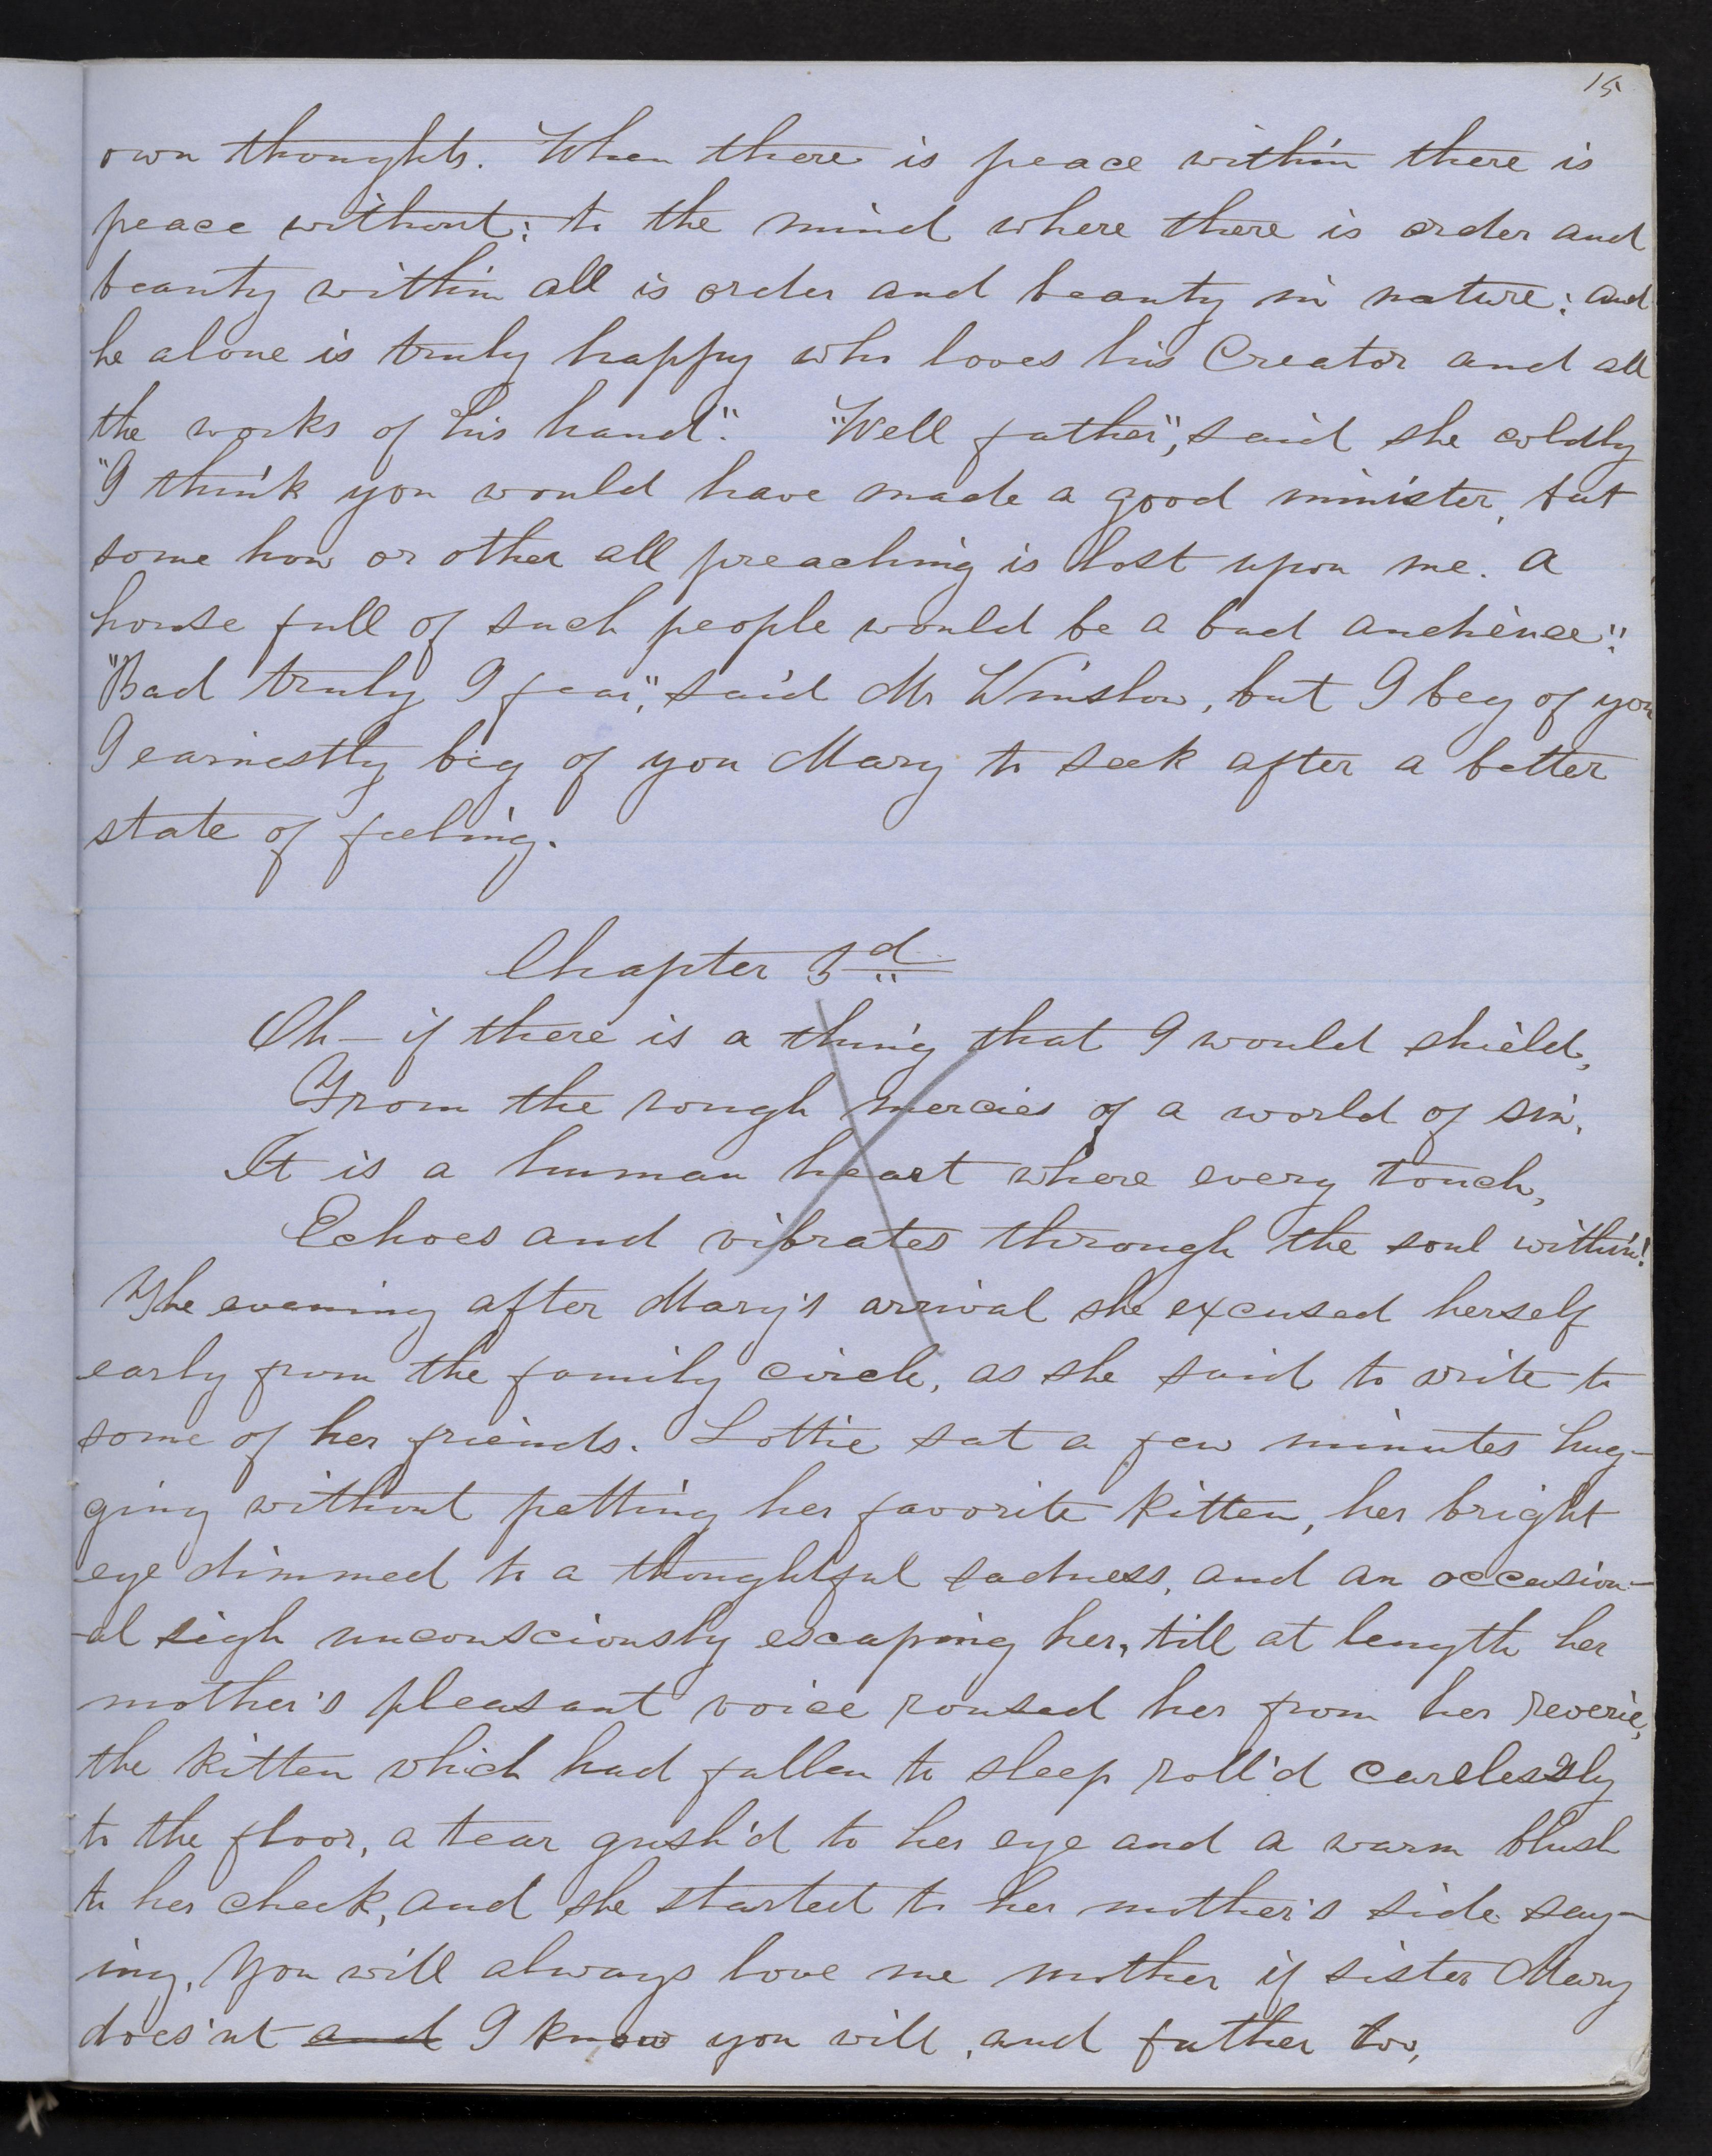 15
own thoughts. When there is peace within there is
peace without: to the mind where there is order and
beauty within all is order and beauty in nature: and
he alone is truly happy who loves his Creator and all
the works of his hand". "Well father", said she coldly
"I think you would have made a good minister, but
some how or other all preaching is lost upon me. A
house full of such people would be a bad audience".
"Bad truly I fear", said Mr Winslow, but I beg of you
I earnestly beg of you Mary to seek after a better
state of feeling.
Chapter 3d
Oh - if there is a thing that I would shield,
From the rough mercies of a world of sin,
It is a human heart where every touch,
Echoes and vibrates through the soul within!
The evening after Mary's arrival she excused herself
early from the family circle, as she said to write to
some of her friends. Lottie sat a few minutes hug-
ging without petting her favorite kitten, her bright
eye dimmed to a thoughtful sadness, and an occasion-
-al sigh unconsciously escaping her, till at length her
mother's pleasant voice roused her from her reverie,
the kitten which had fallen to sleep roll'd carelessly
to the floor, a tear gush'd to her eye and a warm blush
to her cheek, and she started to her mother's side say-
ing, You will always love me mother if sister Mary
does'nt and I know you will, and father too,